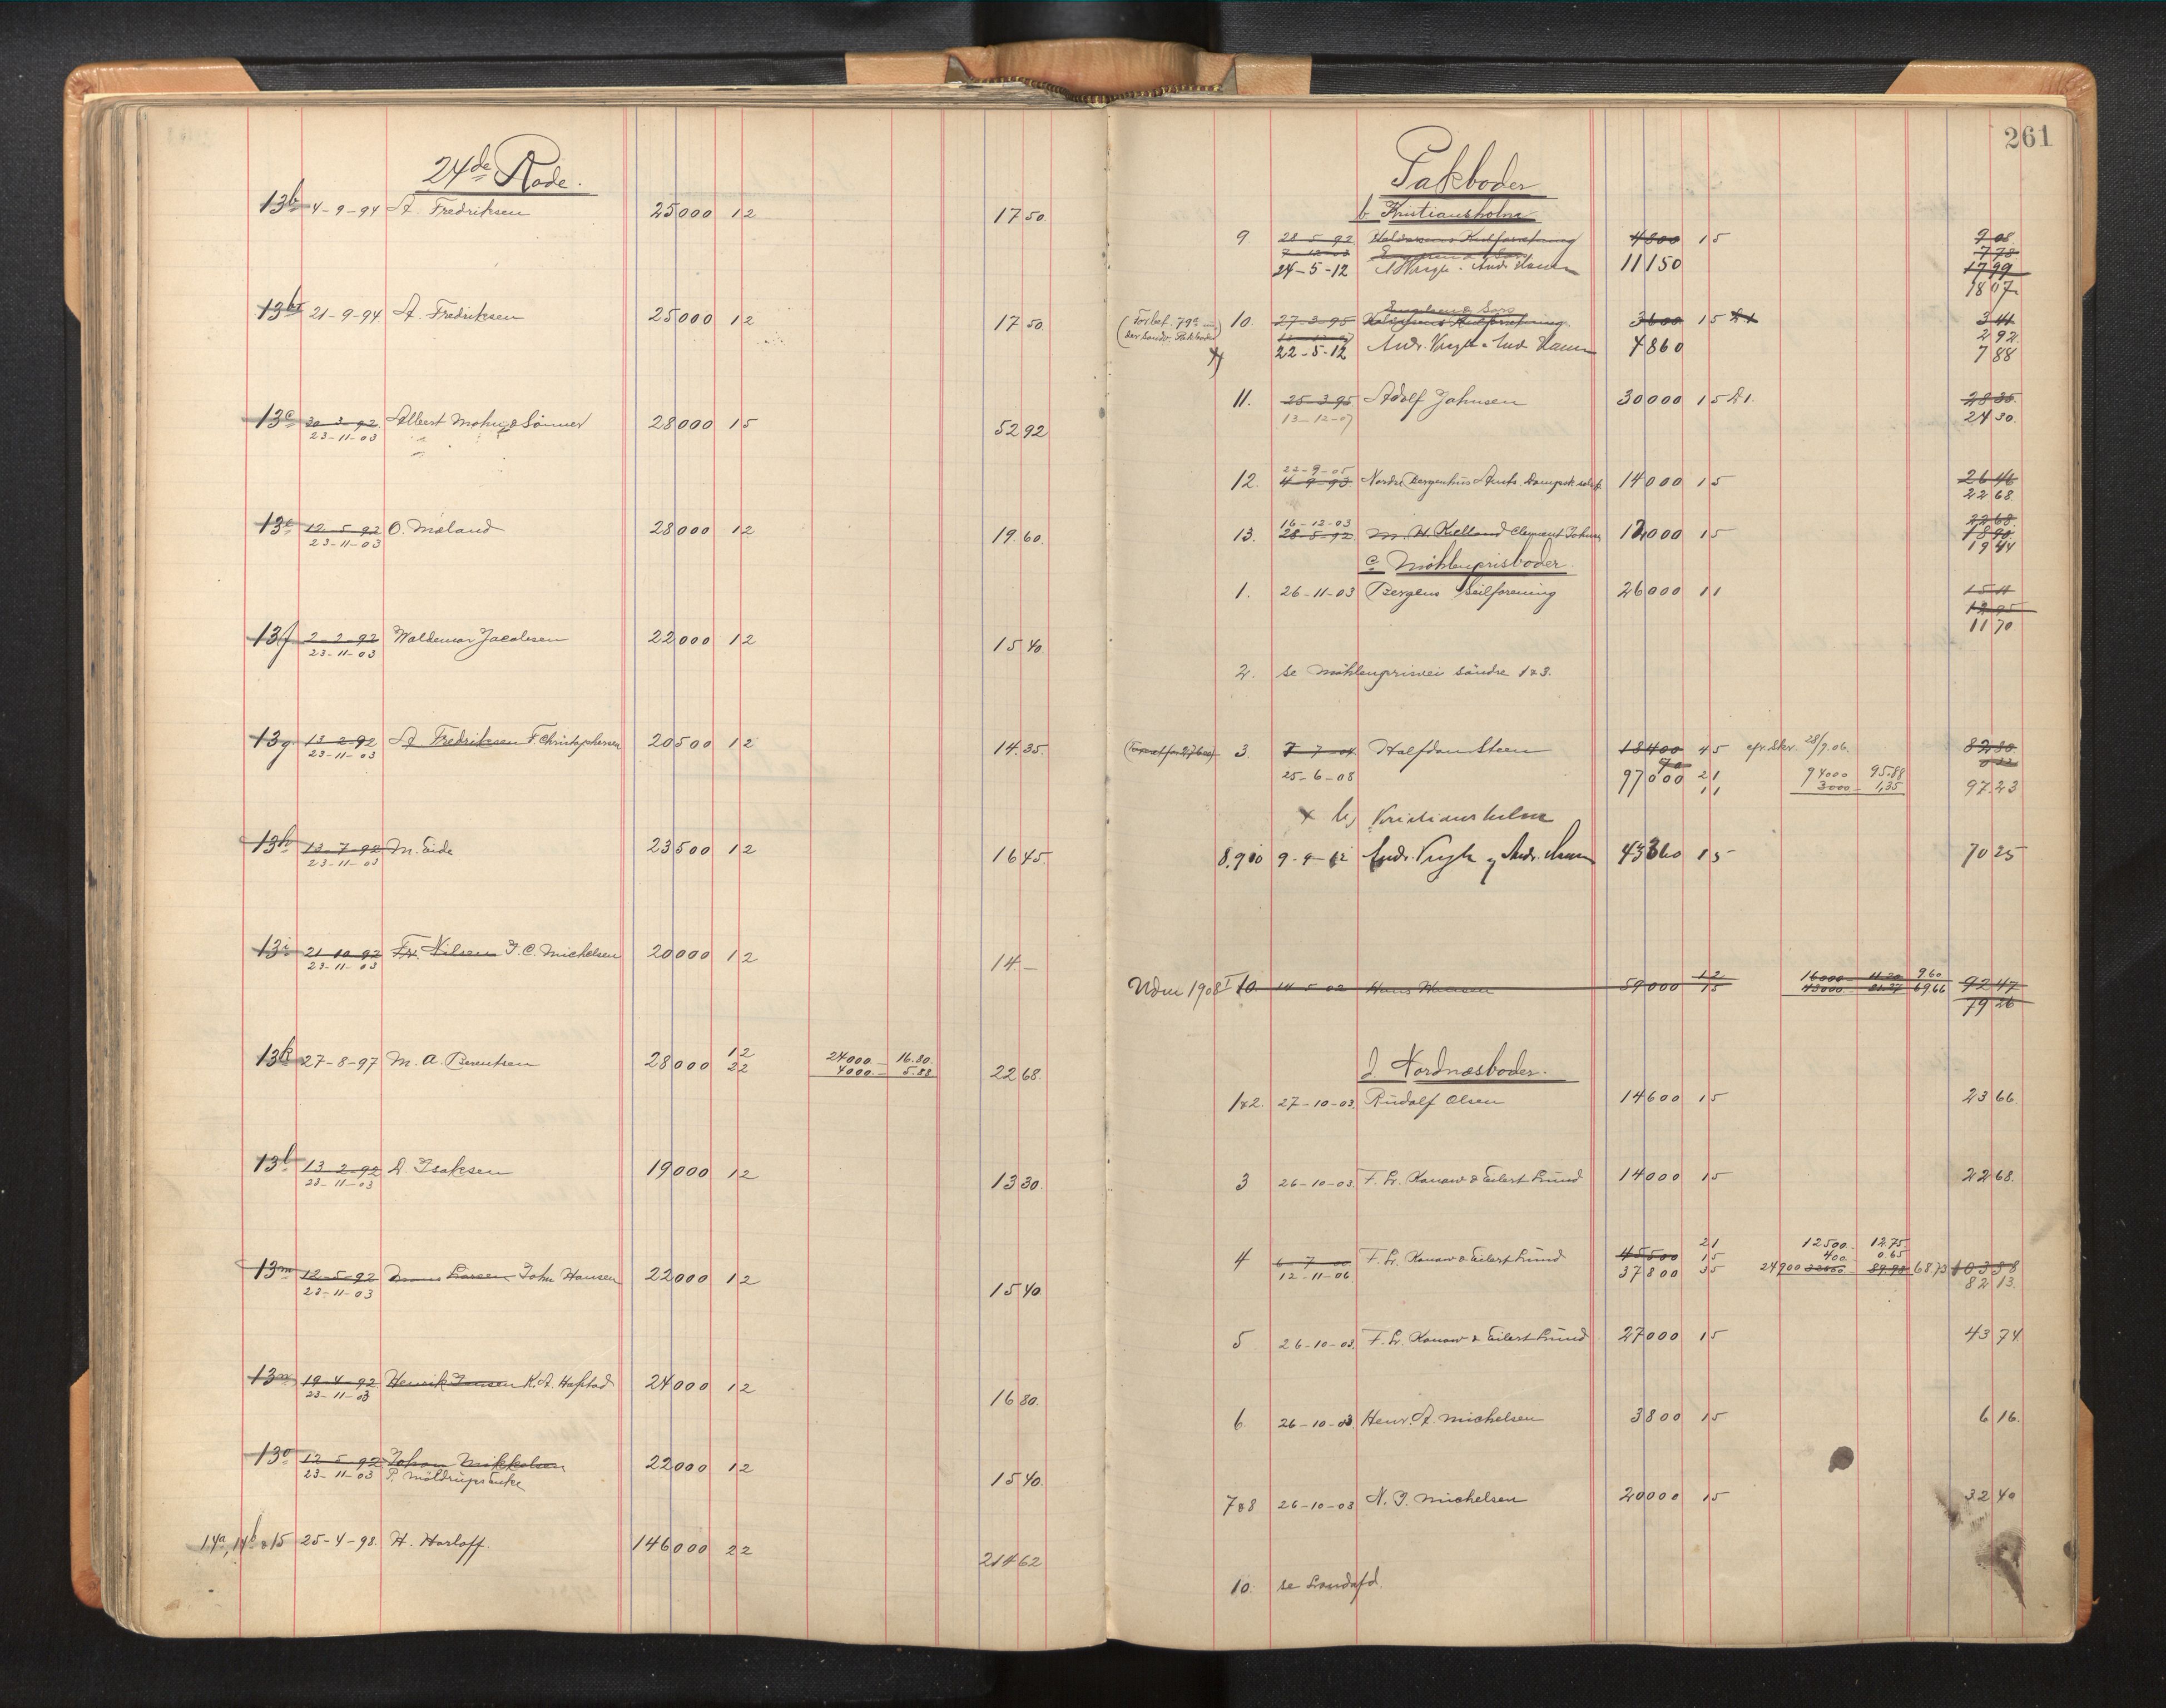 24de Rode.
13b 4-9-94 A. Fredriksen 25000 12 17 50.
13b1 21-9-94 A. Fredriksen 25000 12 17 50
13c 30-3-92 Albert Mohn & Sönner 28000 15 52 92
23-11-03
13e 12-5-92 O. Mæland 28000 12 19.60.
23-11-03
13f 2-2-92 Waldemar Jacobsen 22000 12 15 40.
23-11-03
13g 13-2-92 A Fredriksen F. Christophersen 20500 12 14.35.
23-11-03
13h 13-7-92 M. Eide 23500 12 16 45.
23-11-03
13i 21-10-92 Fr. Nilsen J. C. Michelsen 20000 12 14.—
23-11-03
13k 27-8-97 M. A. Berentsen 28000 12 24000.— 16.80.
22 4000.— 5.88 22 68.
13l 13-2-92 D. Isaksen 19000 12 13 30.
23-11-03
13m 12-5-92 Mons Larsen John Hansen 22000 12 15 40.
23-11-03
13n 19-4-92 Henrik Jansen K. A. Hafstad 24000 12 16 80.
23-11-03
13o 12-5-92 Johan Mikkelsen 22000 12 15 40.
23-11-03 P. Möldrups Enke
14a, 14b & 15 25-4-98. H. Harloff. 146000 22 214 62
261
Pakboder
b Kristiansholm
9 28-5-92 4800 15 9 08.
7-12-03 7 78.
24-5-12 11150 17 99
18 07
Engelsen & Søn
10. 27-3-95 3600 15 D1 3 41
2 92.
22-5-12 4860 7 88
11. 25-3-95 Adolf Johnsen 30000 15 D1. 28 35.
13-12-07 24 30.
22-9-05
12. 4-9-93. Nordre Bergenhus Amts Dampsk.selsk. 14000 15 26 46
22 68.
16-12-03 22 68.
13. 28-5-92 M. H. Kielland Clement Johns. 12000 15 18 90
19 44
c Möhlenprisboder.
1. 26-11-03 Bergens Seilforening 26000 11 15 4
12 95
11 70.
2. se Möhlenprisvei söndre 1&3.
3. 7-7-04 Halfdan Steen 18400 45 cfr. Skr. 28/9.06. 82 80.
25-6-08 97000 21 94000 95.88
11 3000— 1,35 97.23
x b) Kristiansholm
8, 9 & 10 9-9-12 43360 15 70 25
Udm 1908 10. 14-5-02 Hans Hansen 59000 12 16000 11.20 9 60
15 43000. 69.66 92 47
79 26
d. Nordnæsboder.
1&2. 27-10-03. Rudolf Olsen 14600 15 23 66.
3 26-10-03. F. L. Konow & Eilert Lund 14000 15 22 68.
4 6-7-00 F. L. Konow & Eilert Lund 45500 21 12500.— 12.75.
12-11-06 15 400. 0.65
37800 35 24900 32600 89.98 68.73 103 38
82 13.
5 26-10-03. F. L. Konow & Eilert Lund 27000 15 43 74
6. 26-10-03 Henr. A. Michelsen 3800 15 6 16.
7&8 26-10-03 N. J. Michelsen 20000 15 32 40
10. se Landafd.